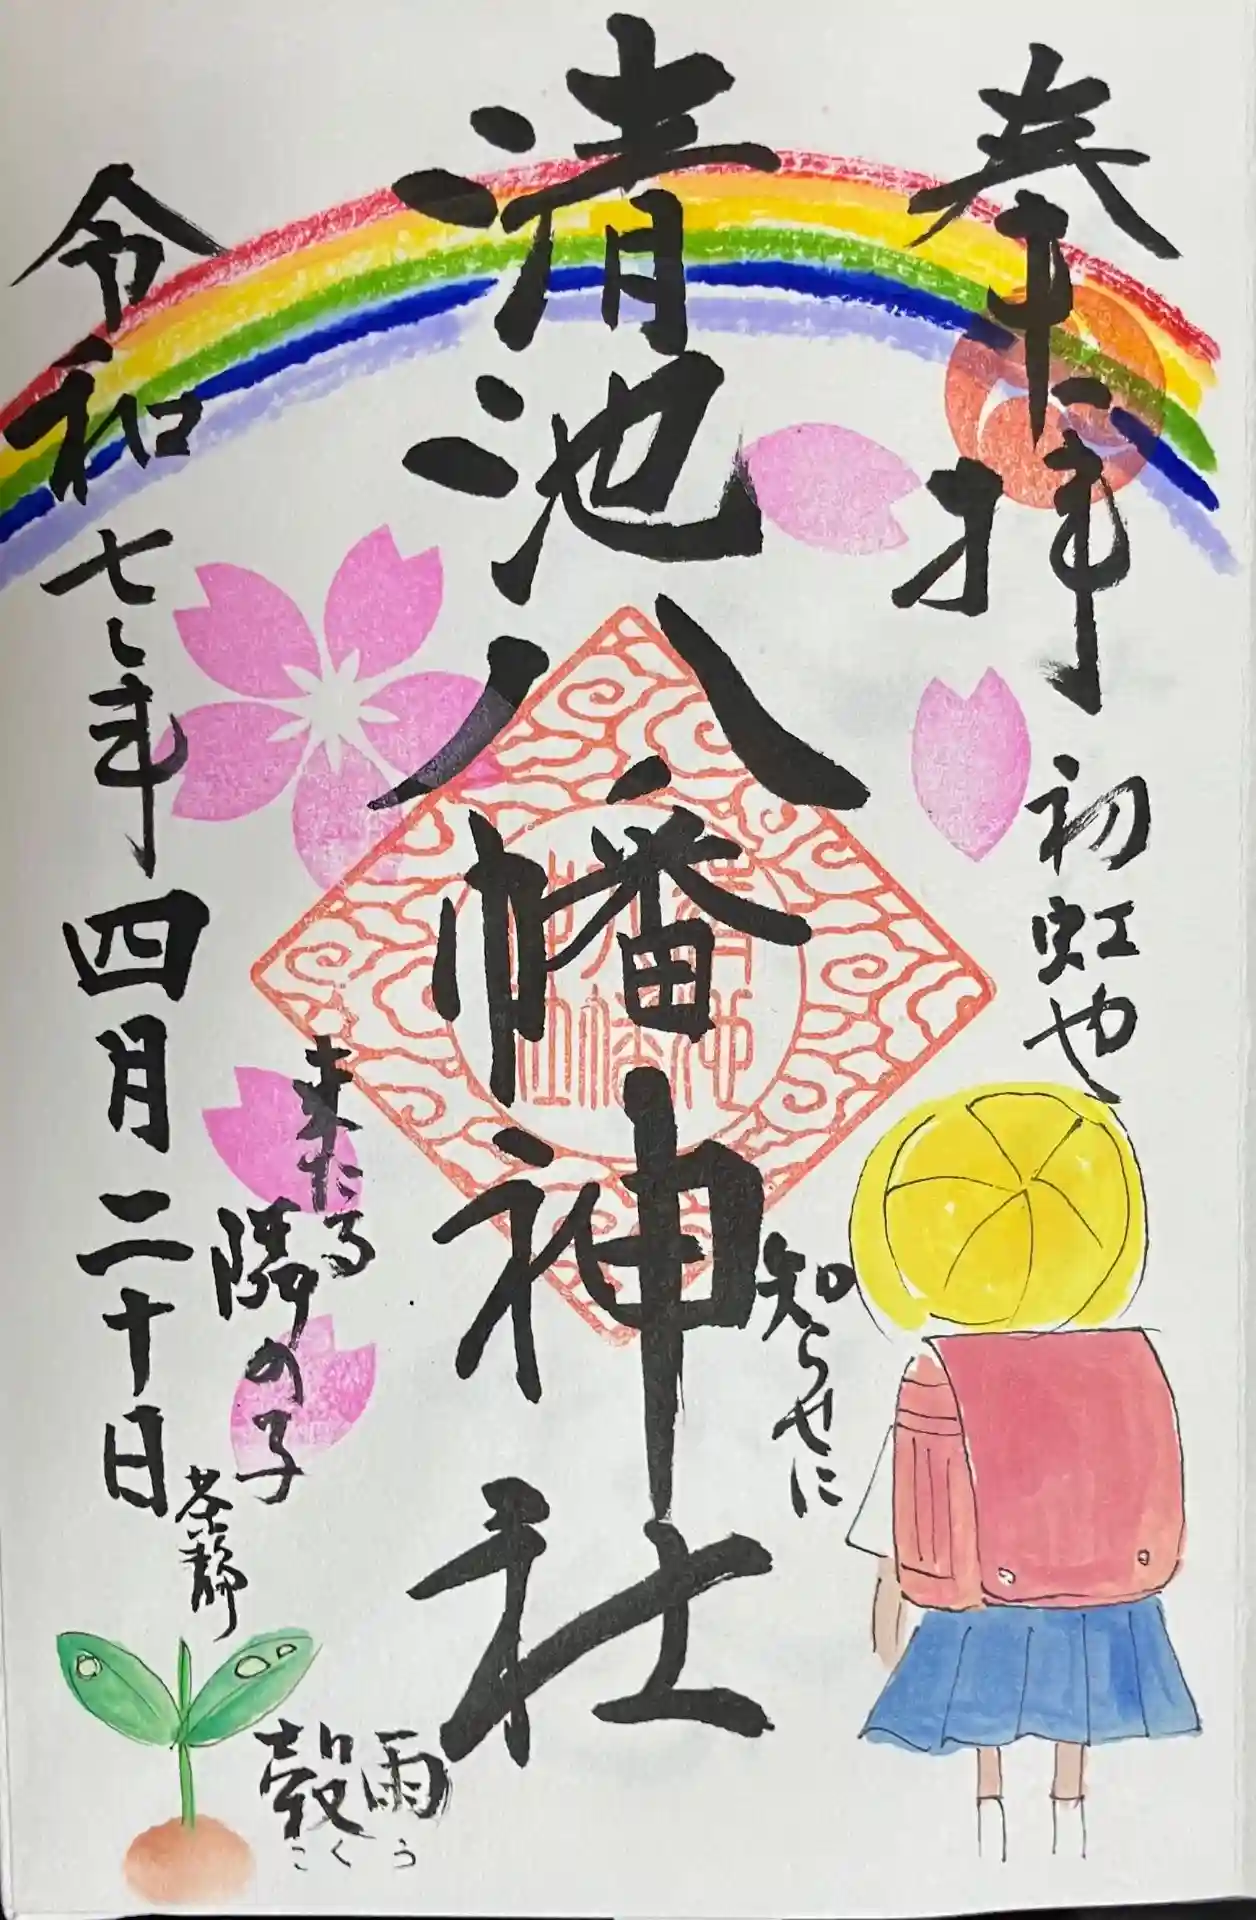 奉拝
初虹や
知らせに
清池八幡神社
来たる
隣の子
茶静
令和七年四月二十日
穀雨
こくう